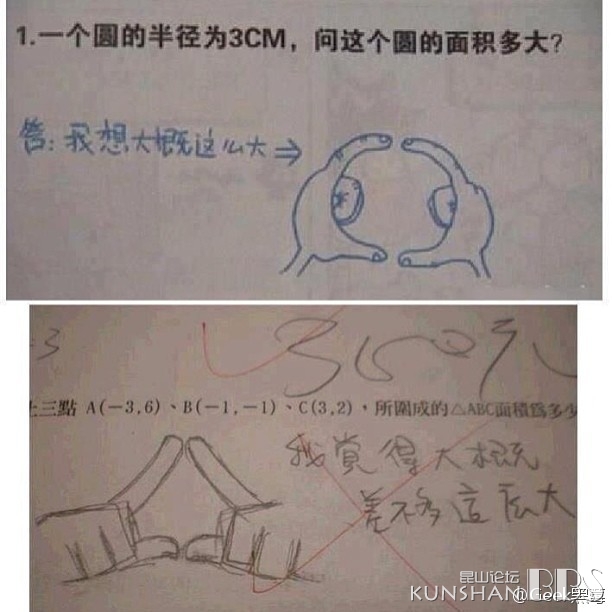 1.一个圆的半径为3CM，问这个圆的面积多大?
答:我想大概这么大⇒
上三點 A(−3,6)、B(−1,−1)、C(3,2)，所圍成的△ABC面積為多少
我覺得大概
差不多這麼大
昆山论坛
KUNSHAN BBS
@Geek黑毒